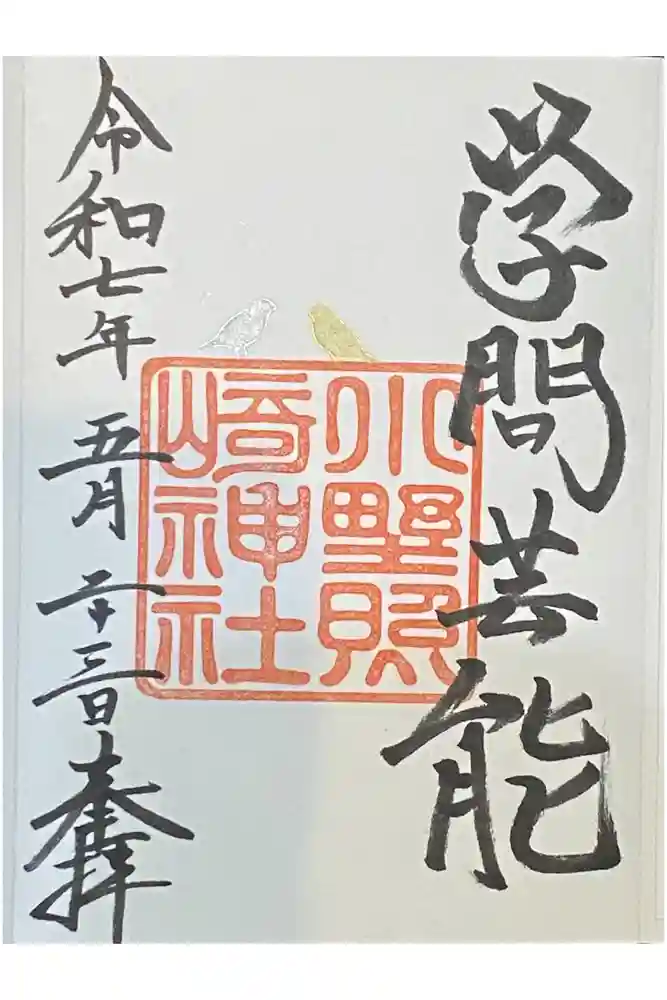 学問芸能
小野照
崎神社
令和七年 五月 二十三日 奉拝